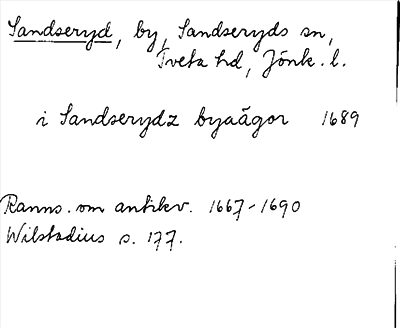 Sandseryd, by, Sandseryds sn,
Tveta hd, Jönk. l.
i Sandserydz byaägor 1689
Ranns. om antikv. 1667-1690
Wilstadius s. 177.